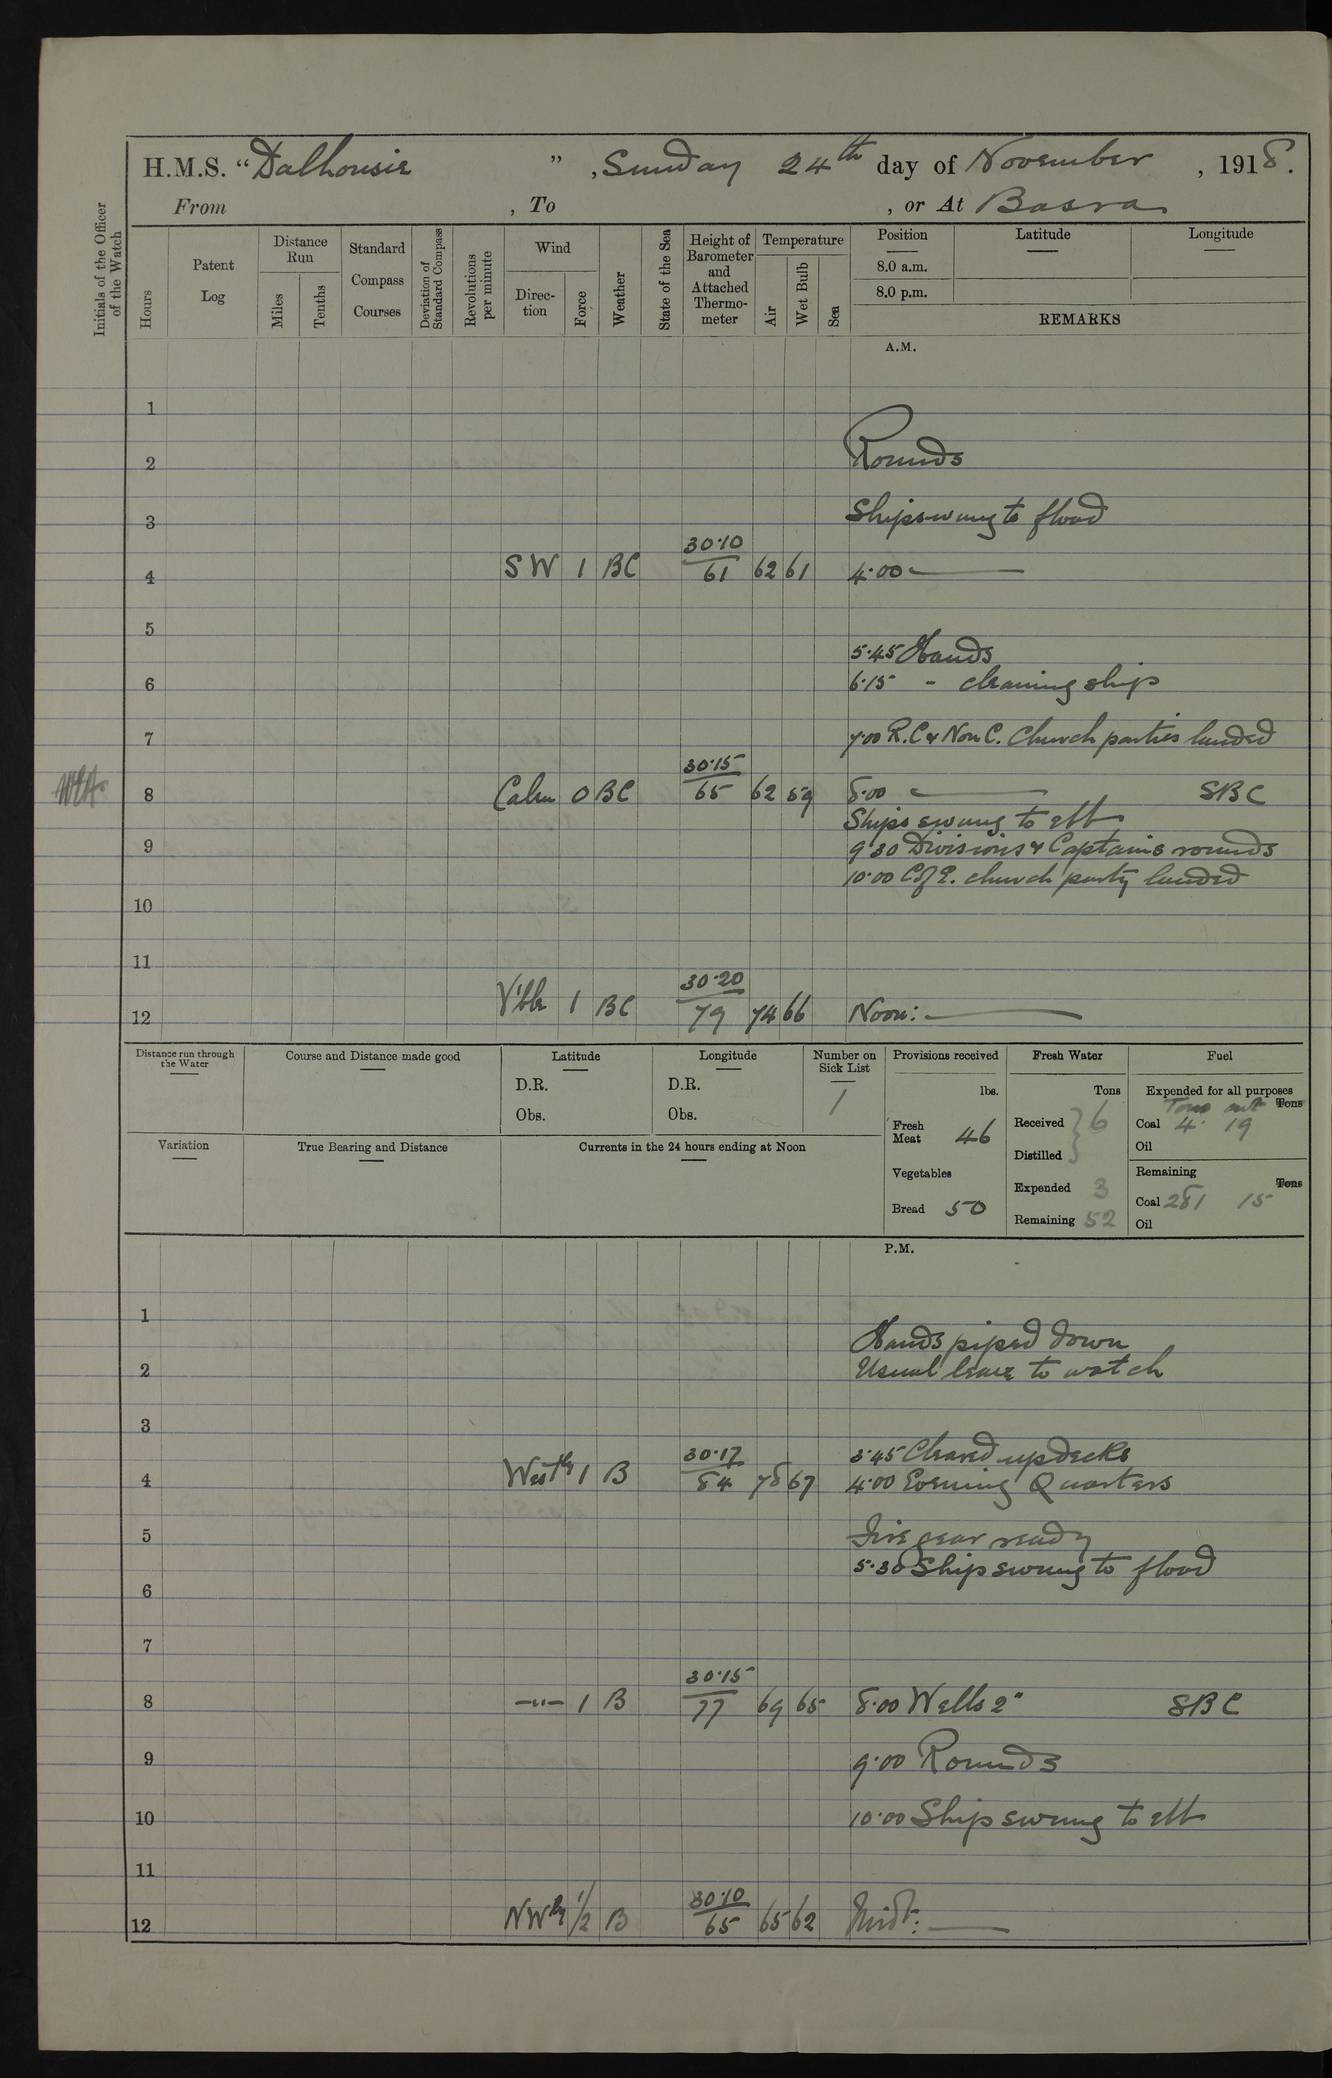 H.M.S. "Dalhousie", Sunday 24th day of November, 1918.
From , To , or At Basra
Initials of the Officer of the Watch
Hours
Patent Log
Distance Run
Miles
Tenths
Standard Compass Courses
Deviation of Standard Compass
Revolutions per minute
Wind
Direction
Force
Weather
State of the Sea
Height of Barometer and Attached Thermometer
Temperature
Air
Wet Bulb
Sea
Position
Latitude
Longitude
8.0 a.m.
8.0 p.m.
REMARKS
A.M.
1
2 Rounds
3 Ship swung to flood
4 SW 1 BC 30.10 61 62 61 4.00
5
5.45 Hands
6 6.15 " cleaning ship
7 7.00 R.C & Non C. Church parties landed
8 Calm 0 BC 30.15 65 62 59 8.00 SBC
Ships swung to ebb
9 9.30 Divisions & Captains rounds
10.00 C of E. church party landed
10
11
12 V'ble 1 BC 30.20 79 74 66 Noon:
Distance run through the Water
Course and Distance made good
Latitude
D.R.
Obs.
Longitude
D.R.
Obs.
Number on Sick List
1
Provisions received
lbs.
Fresh Meat 46
Vegetables
Bread 50
Fresh Water
Tons
Received 6
Distilled
Expended 3
Remaining 52
Fuel
Expended for all purposes
Tons cwt Tons
Coal 4. 19
Oil
Remaining
Tons
Coal 281 15
Oil
Variation
True Bearing and Distance
Currents in the 24 hours ending at Noon
P.M.
1
Hands piped down
2 Usual leave to watch
3
3.45 Cleared up decks
4 West'ly 1 B 30.17 84 78 67 4.00 Evening Quarters
5 Fire gear ready
5.30 Ship swung to flood
6
7
8 -"- 1 B 30.15 77 69 65 8.00 Wells 2" SBC
9 9.00 Rounds
10 10.00 Ship swung to ebb
11
12 NWly 1/2 B 30.10 65 65 62 Midt: